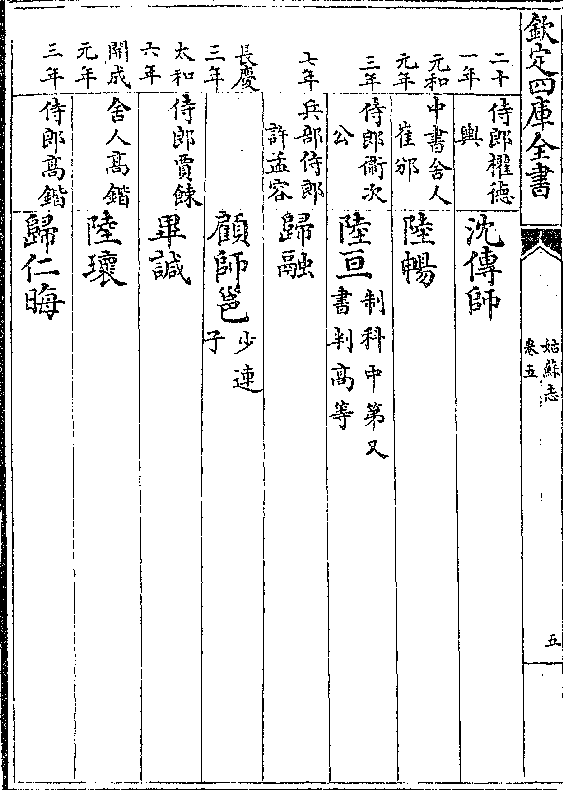 欽定四庫全書
姑蘇志
卷五
五
二十
一年
侍郎權德
輿
沈傳師
元和
元年
中書舍人
崔邠
陸暢
三年
侍郎衞次
公
陸亘
制科中第又
書判高等
七年
兵部侍郎
許孟容
歸融
長慶
三年
顧師邕
少連
子
太和
六年
侍郎賈餗
畢諴
開成
元年
舍人高鍇
陸瓌
三年
侍郎高鍇
歸仁晦